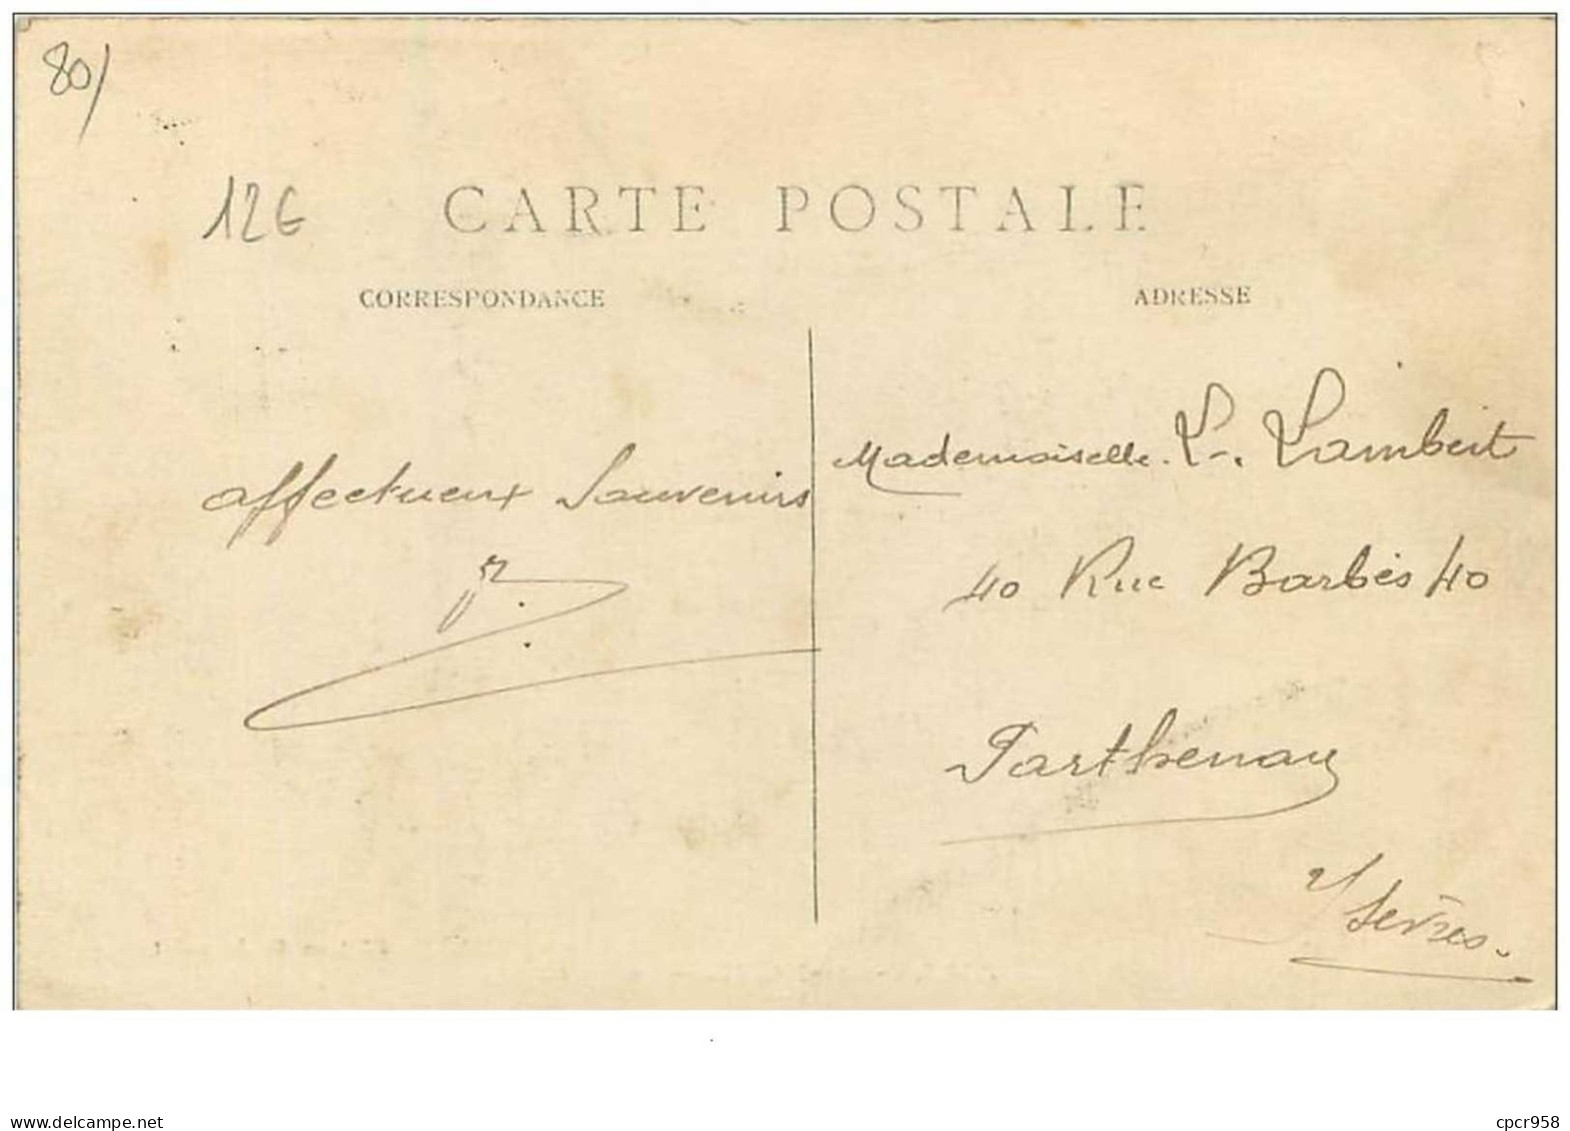 80/
12€
CARTE POSTALE
CORRESPONDANCE
ADRESSE
affectueux Souvenirs
Mademoiselle L. Lambert
40 Rue Barbès 40
Parthenay
2/Sèvres.
www.delcampe.net
cpcr958